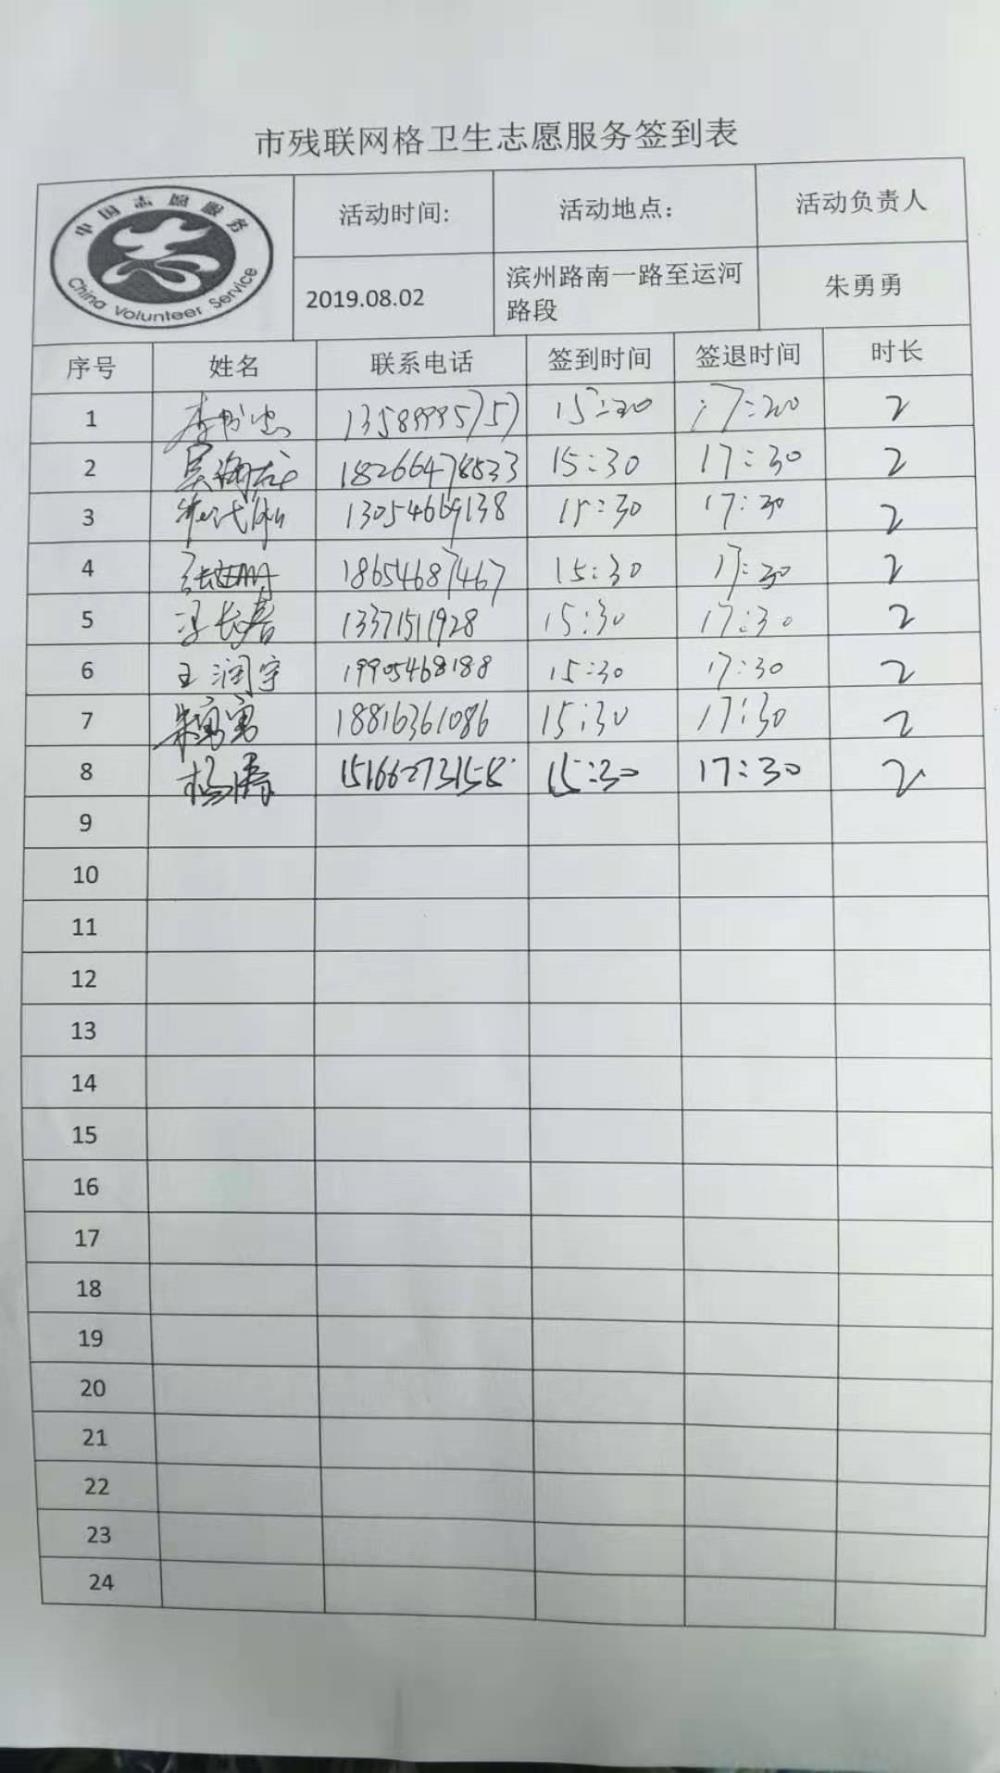 市残联网格卫生志愿服务签到表
中国志愿服务
China Volunteer Service
活动时间: 活动地点: 活动负责人
2019.08.02 滨州路南一路至运河路段 朱勇勇
序号 姓名 联系电话 签到时间 签退时间 时长
1 李书忠 13589995757 15:20 17:20 2
2 18266478533 15:30 17:30 2
3 13054669138 15:30 17:30 2
4 18654687467 15:30 17:30 2
5 冯长春 13371511928 15:30 17:30 2
6 王润宇 19905468188 15:30 17:30 2
7 朱勇勇 18816361086 15:30 17:30 2
8 杨涛 15:30 17:30 2
9
10
11
12
13
14
15
16
17
18
19
20
21
22
23
24